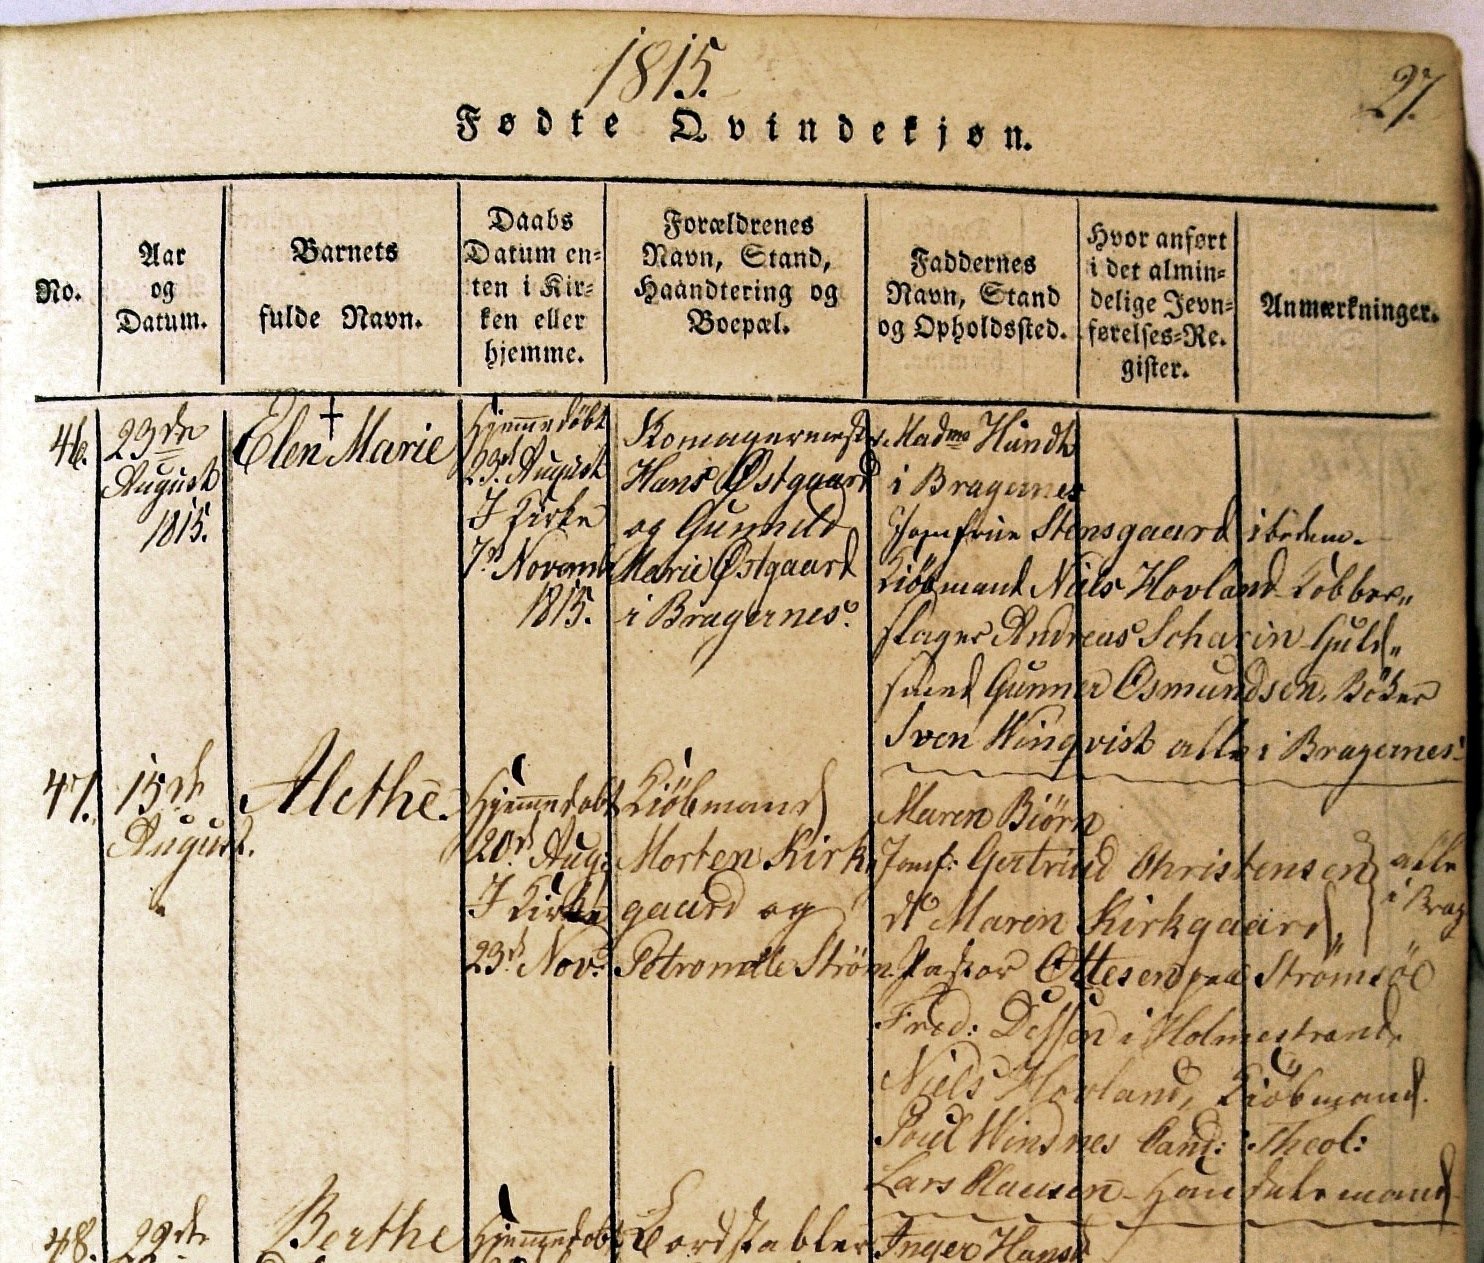 1815.
27.
Fødte Qvindekjøn.
No.
Aar
og
Datum.
Barnets
fulde Navn.
Daabs
Datum en-
ten i Kir-
ken eller
hjemme.
Forældrenes
Navn, Stand,
Haandtering og
Boepæl.
Faddernes
Navn, Stand
og Opholdssted.
Hvor anført
i det almin-
delige Jevn-
førelses-Re-
gister.
Anmærkninger.
46.
23de
August
1815.
†
Elen Marie
Hjemmedöbt
23d August
I Kirke
7d Novemb
1815.
Skomagermester
Hans Østgaard
og Gunnild
Marie Østgaard
i Bragernes.
Madme Hundt
i Bragernes
Jomfrue Stensgaard ibidem.
Kiöbmand Niels Hovland Kobber„
slager Andreas Scharin Guld„
smed Gunner Osmundsen, Böker
Sven Winqvist alle i Bragernes.
47.
15de
August.
Alethe.
Hjemmedöbt
20d Aug.
I Kirke
23d Nov.
Kiöbmand
Morten Kirk„
gaard og
Petronelle Ström
Maren Biörn
Jomf: Gertrud Christensen
do Maren Kirkgaard„
alle
i Brag
Pastor Ottesen paa Strömsöe
Fred: Dessen i Holmestrand.
Niels Hovland, Kiöbmand.
Poul Windnes Cand: Theol:
Lars Clausen Handelsmand
48.
Berthe
Hjemmedöbt
Bordstabler
Inger Hansd